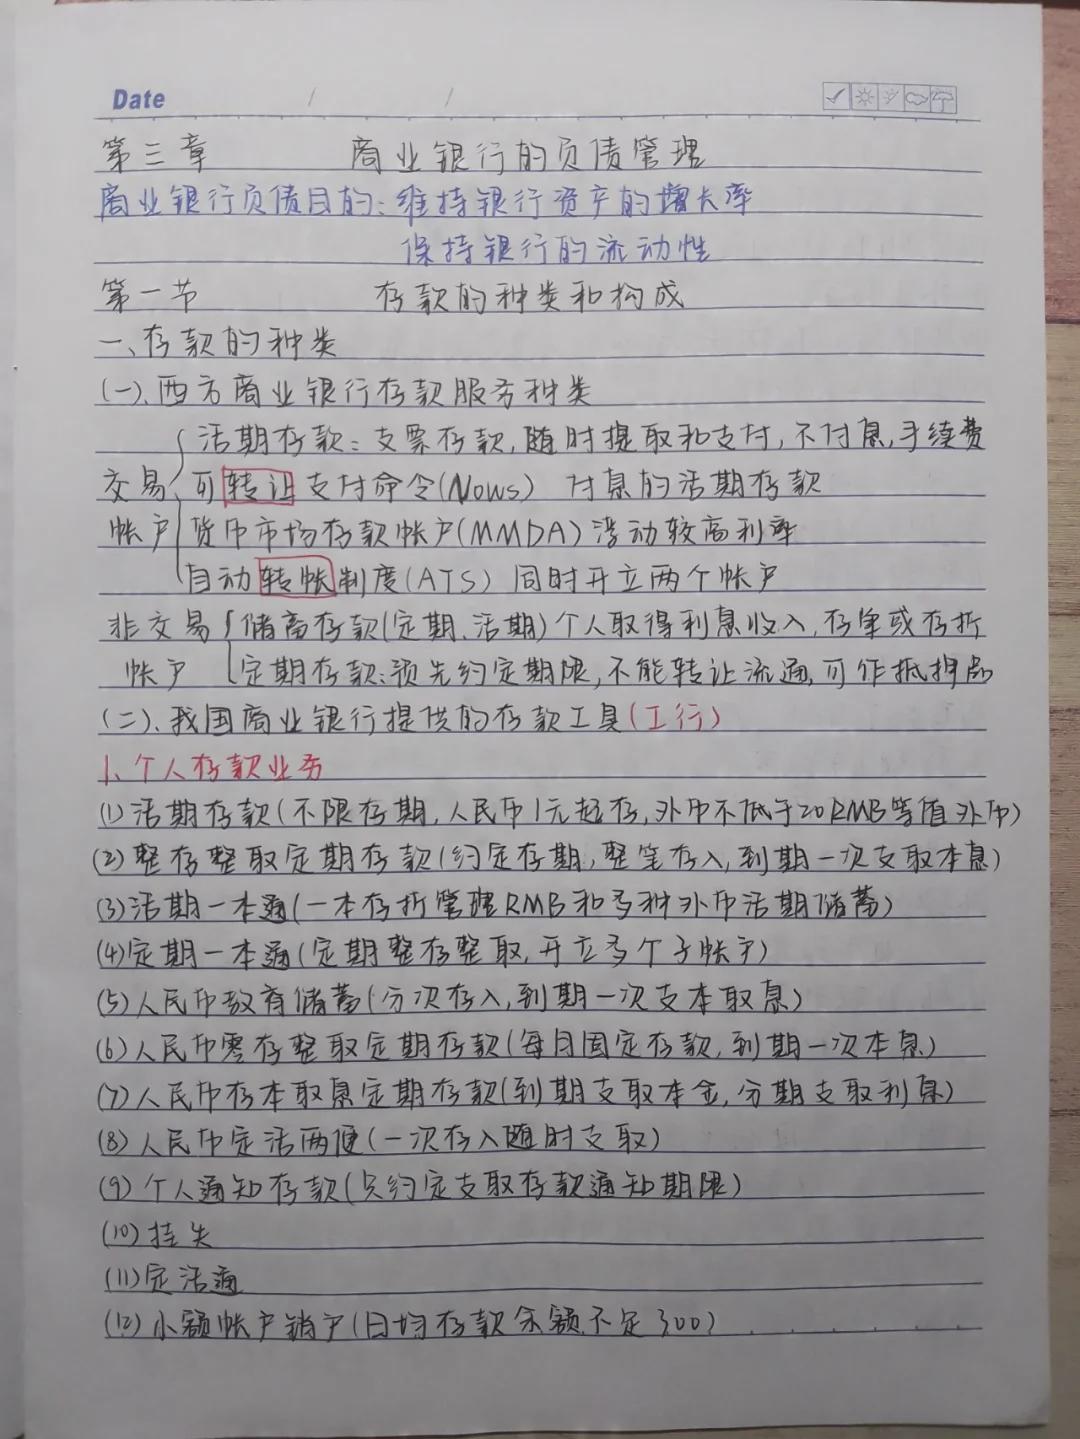 Date / /
第三章 商业银行的负债管理
商业银行负债目的:维持银行资产的增长率
保持银行的流动性
第一节 存款的种类和构成
一、存款的种类
(一)、西方商业银行存款服务种类
活期存款:支票存款,随时提取和支付,不付息,手续费
交易 可转让支付命令(Nows) 付息的活期存款
帐户 货币市场存款帐户(MMDA)浮动较高利率
自动转帐制度(ATS) 同时开立两个帐户
非交易 储蓄存款(定期、活期)个人取得利息收入,存单或存折
帐户 定期存款:预先约定期限,不能转让流通,可作抵押品
(二)、我国商业银行提供的存款工具(工行)
1、个人存款业务
(1)活期存款(不限存期,人民币1元起存,外币不低于20RMB等值外币)
(2)整存整取定期存款(约定存期,整笔存入,到期一次支取本息)
(3)活期一本通(一本存折管理RMB和多种外币活期储蓄)
(4)定期一本通(定期整存整取,开立多个子帐户)
(5)人民币教育储蓄(分次存入,到期一次支本取息)
(6)人民币零存整取定期存款(每月固定存款,到期一次本息)
(7)人民币存本取息定期存款(到期支取本金,分期支取利息)
(8)人民币定活两便(一次存入随时支取)
(9)个人通知存款(只约定支取存款通知期限)
(10)挂失
(11)定活通
(12)小额帐户销户(日均存款余额不足300)